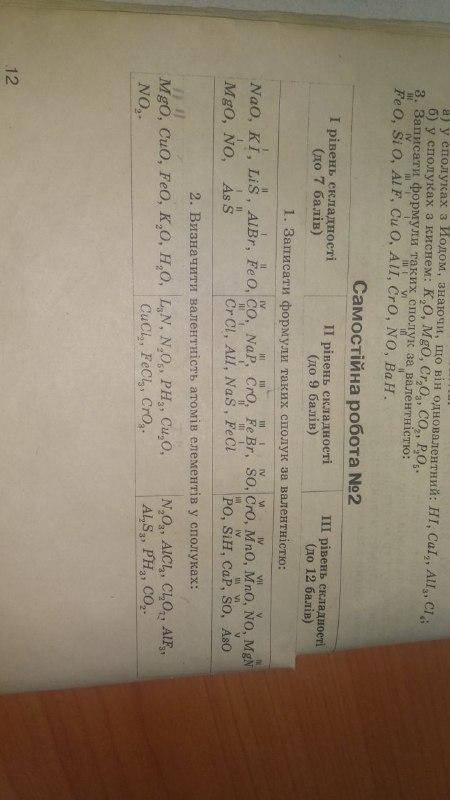 а) у сполуках з Йодом, знаючи, що він одновалентний: HI, CaI₂, AlI₃, CI₄;
б) у сполуках з киснем: K₂O, MgO, Cr₂O₃, CO₂, P₂O₅.
3. Записати формули таких сполук за валентністю:
FeO, SiO, AlF, CuO, AlI, CrO, NO, BaH.
Самостійна робота №2
I рівень складності (до 7 балів)
II рівень складності (до 9 балів)
III рівень складності (до 12 балів)
1. Записати формули таких сполук за валентністю:
NaO, KI, LiS, AlBr, FeO,
MgO, NO, AsS
CO, NaP, CrO, FeBr, SO,
CrCl, AlI, NaS, FeCl
CrO, MnO, MnO, NO, MgN
PO, SiH, CaP, SO, AsO
2. Визначити валентність атомів елементів у сполуках:
MgO, CuO, FeO, K₂O, H₂O,
NO₂.
L₃N, N₂O₅, PH₃, Cu₂O,
CuCl₂, FeCl₃, CrO₃.
N₂O₃, AlCl₃, Cl₂O₇, AlF₃,
Al₂S₃, PH₃, CO₂.
12